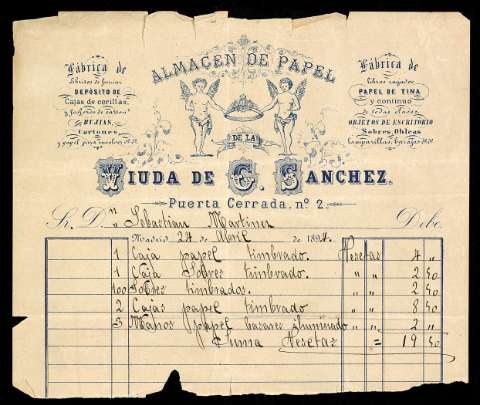 ALMACEN DE PAPEL
DE LA
VIUDA DE G. SANCHEZ.
Puerta Cerrada, nº 2.
Fábrica de
Libritos de fumar
DEPÓSITO DE
Cajas de cerillas,
BUJIAS,
Cartones
y papel para
Fábrica de
Libros rayados
PAPEL DE TINA
y continuo
de todas clases
OBJETOS DE ESCRITORIO
Sobres, Obleas
Lamparillas, barajas &ª &ª
Sr. Dn Sebastian Martinez Debe
Madrid 24 de Abril de 1894.
1 Caja papel timbrado. Pesetas 4 "
1 Caja Sobres timbrado. " " 2 50
100 Sobres timbrados. " " 2 50
2 Cajas papel timbrado " " 8 50
3 Manos papel basares iluminado " " 2 "
Suma Pesetas = 19 50